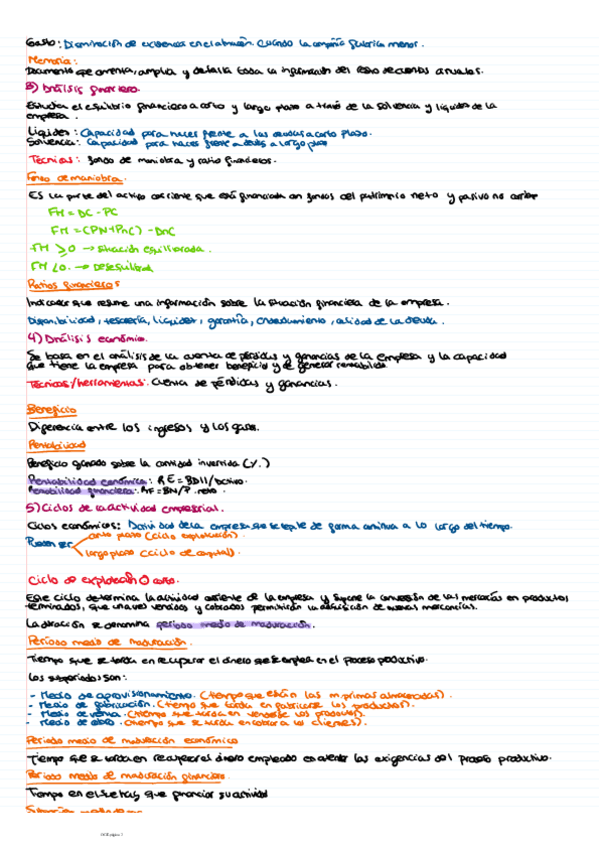 Gasto: Disminución de existencias en el almacén. Cuando la compañía fabrica menor.
Memoria:
Documento que comenta, amplia y detalla toda la información del resto de cuentas anuales.
3) Análisis financiero.
Estudia el equilibrio financiero a corto y largo plazo a través de la solvencia y liquidez de la
empresa.
Liquidez: Capacidad para hacer frente a las deudas a corto plazo.
Solvencia: Capacidad para hacer frente a deudas a largo plazo
Técnicas: fondo de maniobra y ratio financieros.
Fondo de maniobra.
Es la parte del activo corriente que está financiada con fondos del patrimonio neto y pasivo no corriente
FM = AC - PC
FM = (PN+PNC) - ANC
FM ≥ 0 → Situación equilibrada.
FM < 0. → Desequilibrada
Ratios financieros
Indicador que resume una información sobre la situación financiera de la empresa.
Disponibilidad, tesorería, liquidez, garantía, endeudamiento, calidad de la deuda.
4) Análisis económico.
Se basa en el análisis de la cuenta de pérdidas y ganancias de la empresa y la capacidad
que tiene la empresa para obtener beneficio y de generar rentabilidad.
Técnicas/herramientas: Cuenta de pérdidas y ganancias.
Beneficio
Diferencia entre los ingresos y los gastos.
Rentabilidad
Beneficio ganado sobre la cantidad invertida (%)
Rentabilidad económica: RE = BAII/Activo.
Rentabilidad financiera: RF = BN/P. neto.
5) Ciclos de la actividad empresarial.
Ciclos económicos: Actividad de la empresa que se repite de forma continua a lo largo del tiempo.
Pueden ser
corto plazo (ciclo explotación)
largo plazo (ciclo de capital).
Ciclo de explotación O corto.
Este ciclo determina la actividad corriente de la empresa y supone la conversión de las mercancías en productos
terminados, que una vez vendidos y cobrados permitirán la adquisición de nuevas mercancías.
La duración se denomina período medio de maduración.
Período medio de maduración.
Tiempo que se tarda en recuperar el dinero que se emplea en el proceso productivo.
Los subperíodos son:
- Medio de aprovisionamiento. (tiempo que están las m.primas almacenadas).
- Medio de fabricación. (tiempo que tarda en fabricarse los productos).
- Medio de venta. (tiempo que se tarda en venderse los productos).
- Medio de cobro. (tiempo que se tarda en cobrar a los clientes).
Período medio de maduración económico
Tiempo que se tarda en recuperar el dinero empleado en atender las exigencias del proceso productivo.
Período medio de maduración financiero.
Tiempo en el que hay que financiar su actividad